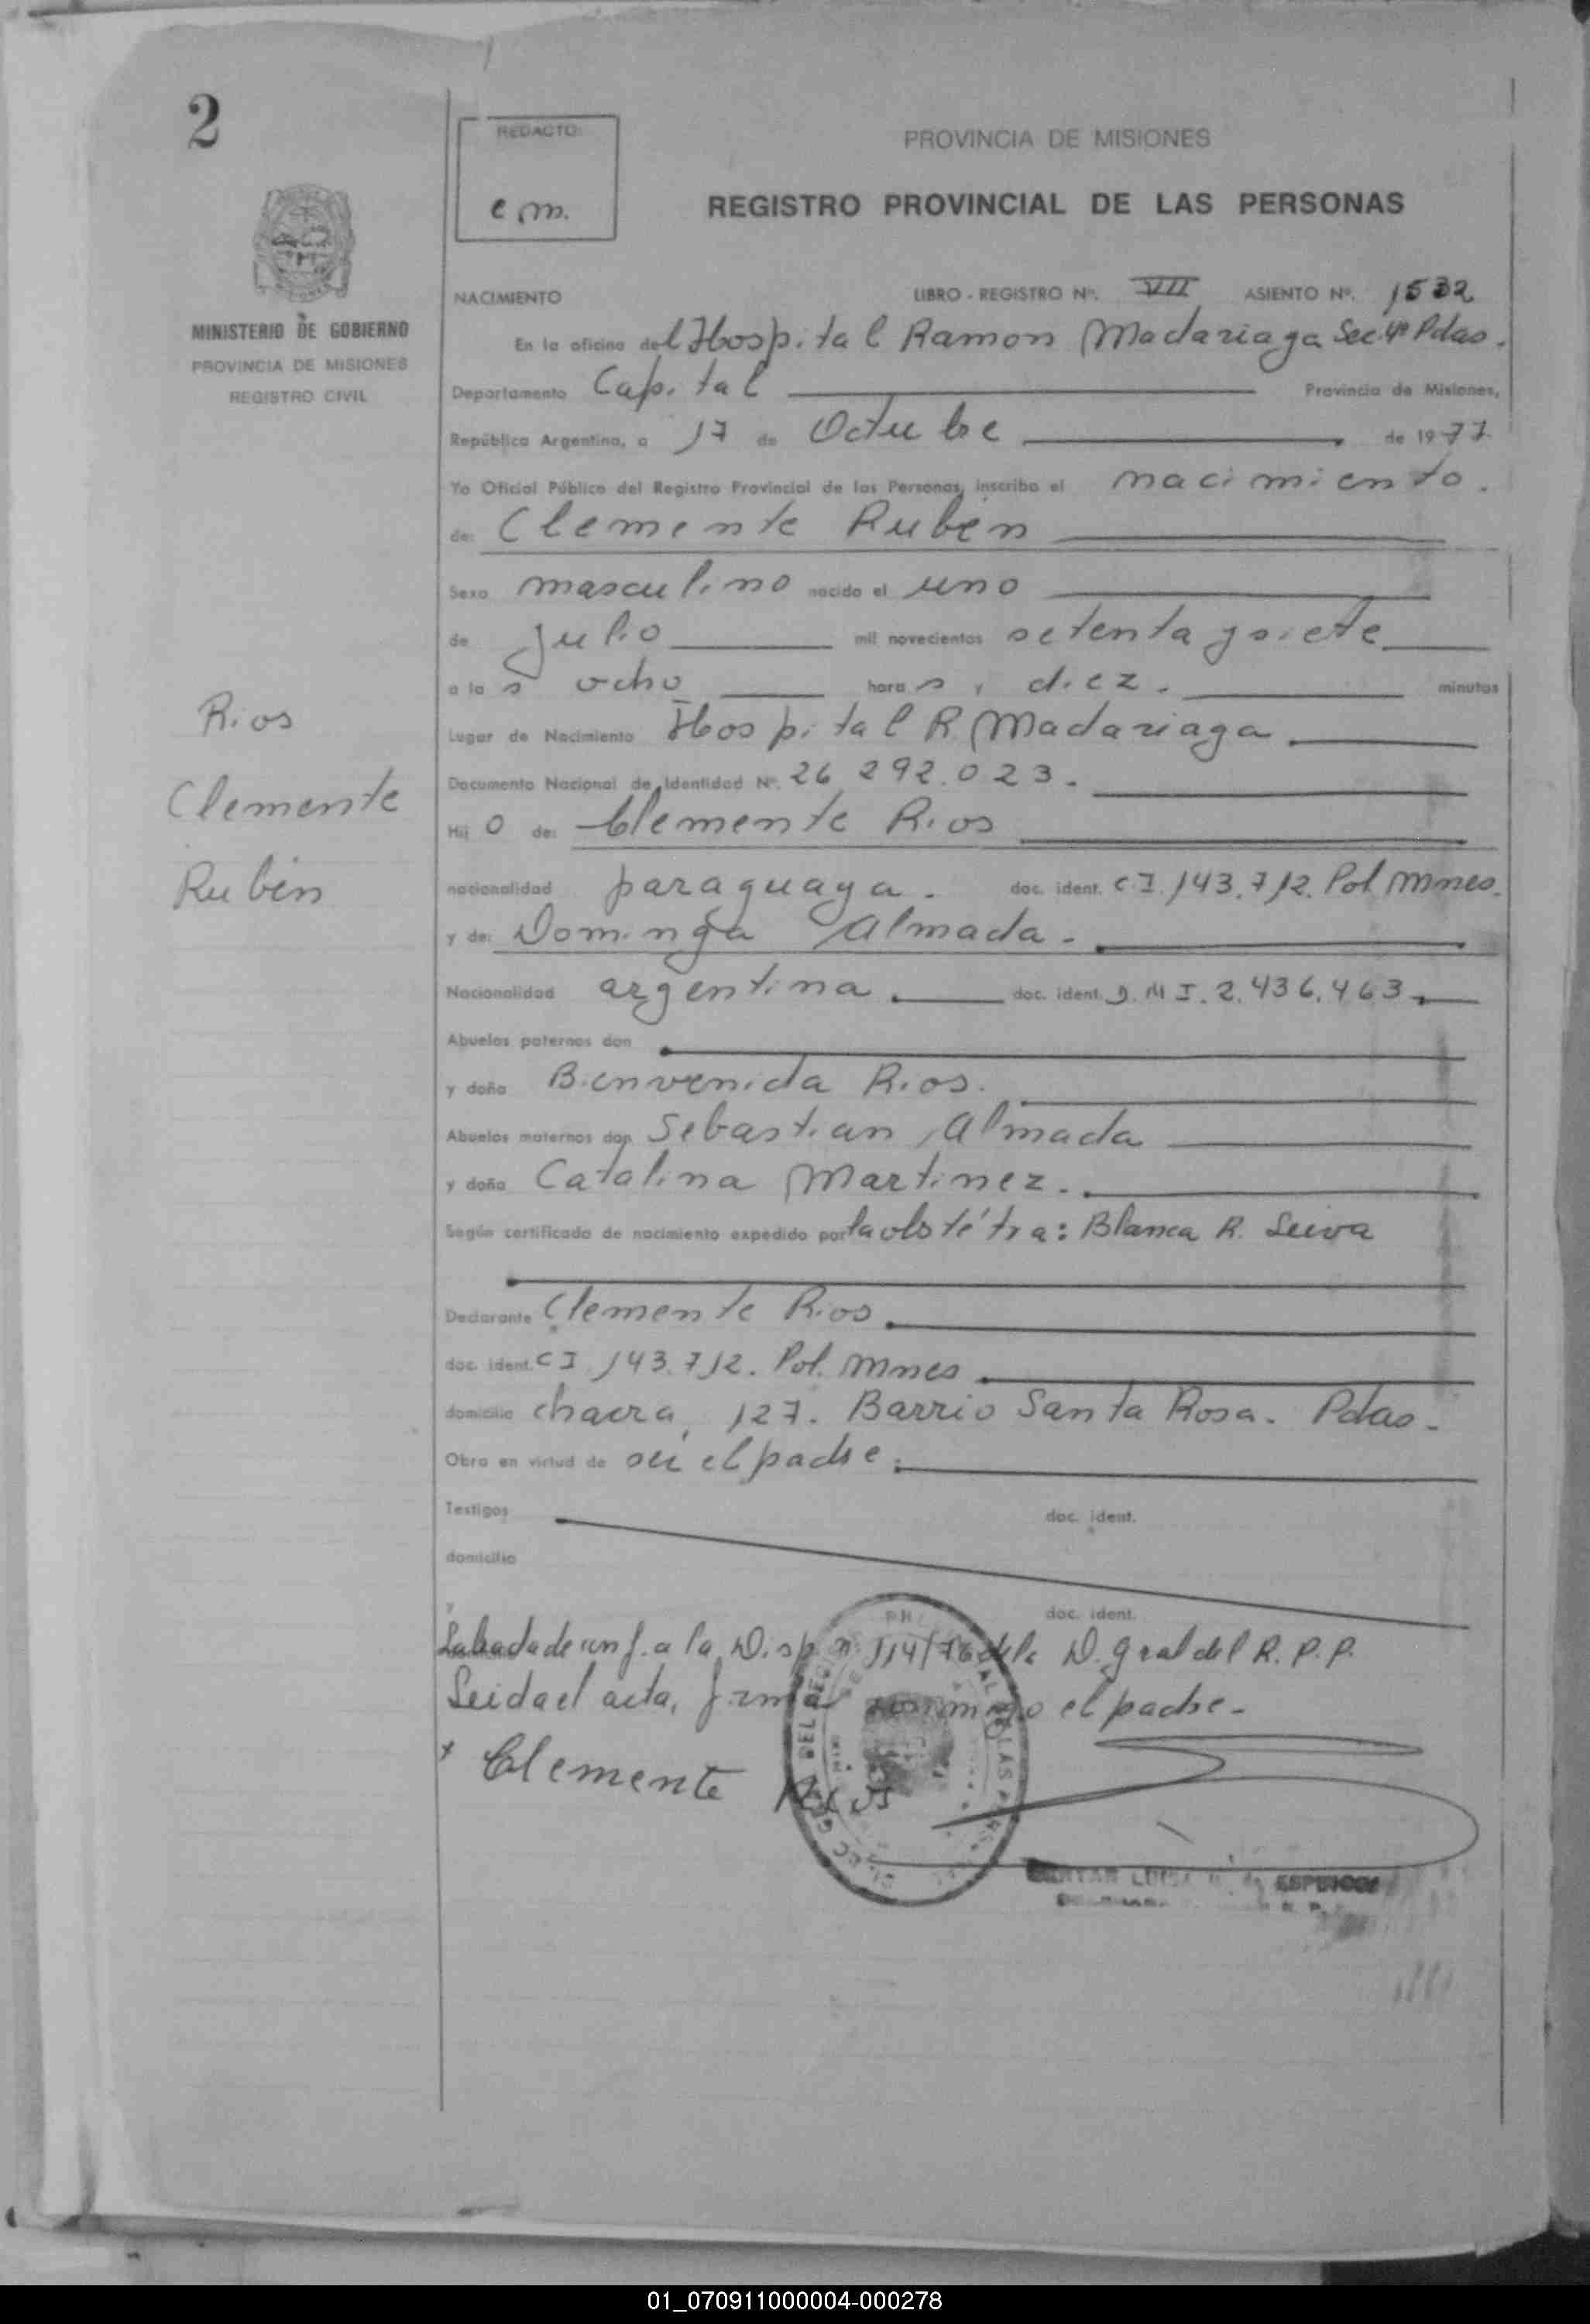 2
REDACTO:
e m.
MINISTERIO DE GOBIERNO
PROVINCIA DE MISIONES
REGISTRO CIVIL
PROVINCIA DE MISIONES
REGISTRO PROVINCIAL DE LAS PERSONAS
NACIMIENTO LIBRO - REGISTRO Nº. VII ASIENTO Nº. 1532
En la oficina del Hospital Ramon Madariaga Sec. 4º Pdas.
Departamento Capital Provincia de Misiones,
República Argentina, a 17 de Octubre de 1977
Yo Oficial Público del Registro Provincial de las Personas, inscribo el nacimiento.
de: Clemente Rubén
Sexo masculino nacido el uno
de Julio mil novecientos setenta y siete
a las ocho horas, diez. minutos
Rios
Clemente
Rubén
Lugar de Nacimiento Hospital R. Madariaga
Documento Nacional de Identidad Nº. 26 292.023.
Hijo de: Clemente Rios
nacionalidad paraguaya. doc. ident. C I. 143.712. Pol Mnes.
y de: Dominga Almada.
Nacionalidad argentina. doc. ident. D. M I. 2.436.463
Abuelos paternos don
y doña Bienvenida Rios.
Abuelos maternos don Sebastian Almada
y doña Catalina Martinez.
Según certificado de nacimiento expedido por la obstétra: Blanca R. Leiva
Declarante Clemente Rios
doc. ident. C I 143.712. Pol. Mnes
domicilio chacra, 127. Barrio Santa Rosa. Pdas.
Obra en virtud de ser el padre.
Testigos doc. ident.
domicilio
y doc. ident.
Labrada de conf. a la Disp. n. 114/76 de la D. Gral del R. P. P.
Leida el acta, firma conmigo el padre.
x Clemente Rios
LUISA de ESPINOSA
01_070911000004-000278